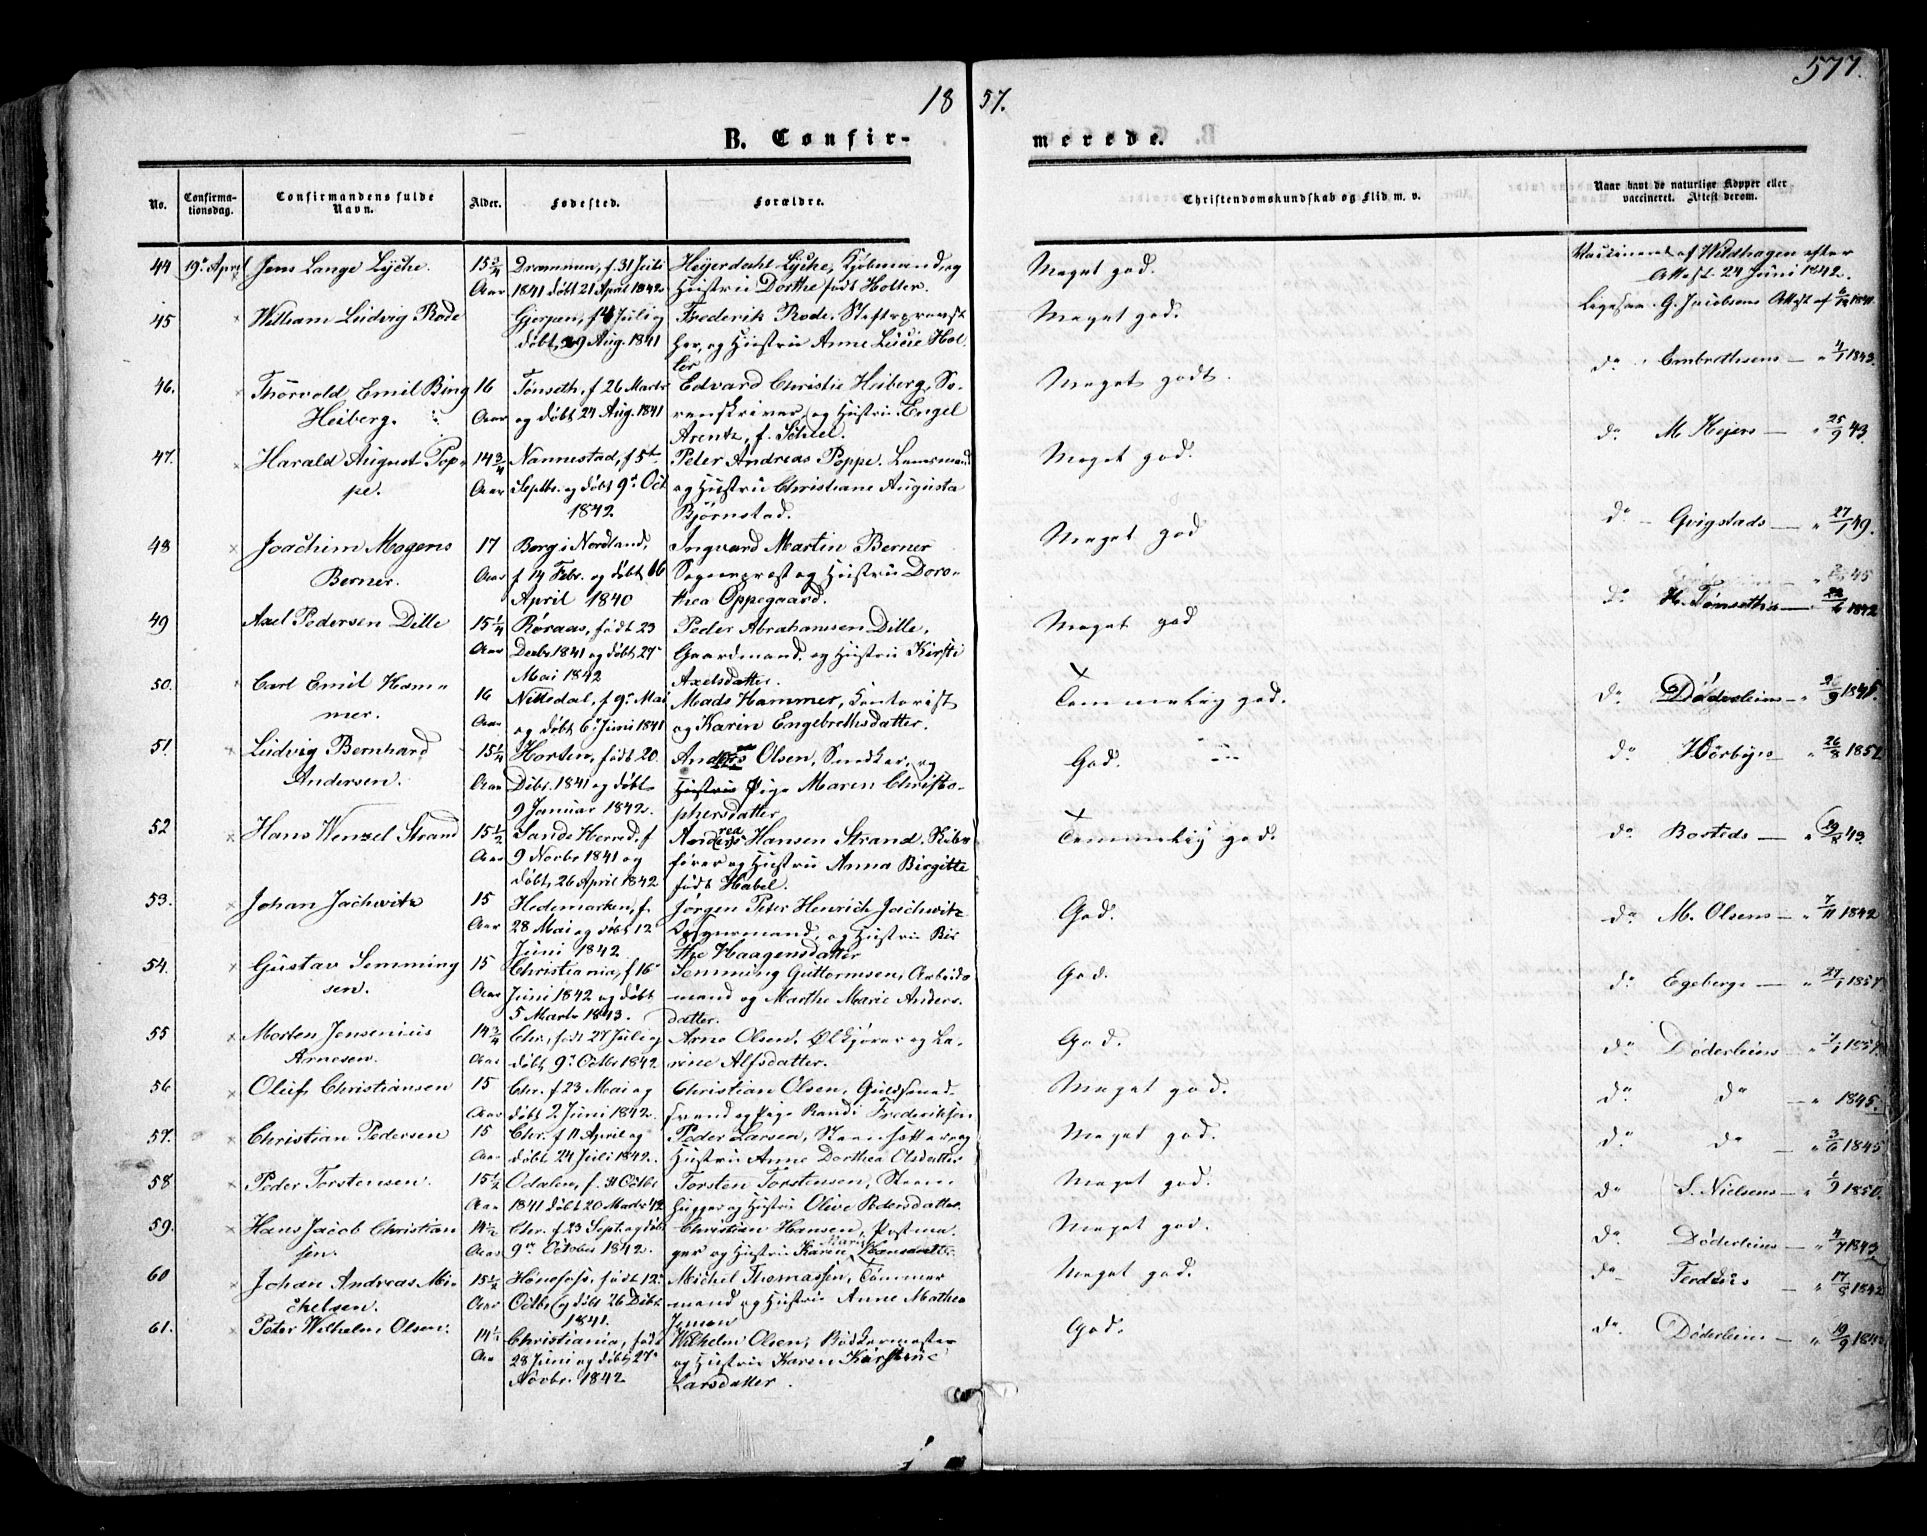 577.
18 57.
B. Confir- merede.
No. Confirma-tionsdag. Confirmandens fulde Navn. Alder. Fødested. Forældre. Christendomskundskab og Flid m. v. Naar havt de naturlige Kopper eller vaccineret. Attest derom.
44 19de April Jens Lange Lyche. 15 3/4 Drammen, f. 31 Juli Heyerdahl Lyche, Kjøbmand, og Meget god. Vaccineret af Wildhagen efter
Aar 1841 døbt 21 April 1842 Hustru Dorthe født Holter. Attest 24 Juni 1842.
45 William Ludvig Rode Gjerpen, f. 4 Juli og Frederik Rode, Stiftsprovst Meget god. Ligesaa G. Jacobsens Attest af
døbt 29 Aug. 1841 her, og Hustru Anne Lucie Hol-
ler
46. Thorvold Emil Bing 16 Tønseth, f 26 Marts Edvard Christie Heiberg, So- Meget godt. do Embrethsens — " 4/1 1843.
Heiberg. Aar og døbt 24 Aug. 1841 renskriver, og Hustru Engel
Arentz, f. Schiel.
47. Harald August Pop- 14 3/4 Nannestad, f 5te Peter Andreas Poppe. Lensmand Meget god. do M. Kejers — " 25/9 43.
pe. Aar Septbr. og døbt 9de Oct. og Hustru Christiane Augusta
1842 Bjørnstad.
48 Joachim Mogens 17 Borg i Nordland, Ingvard Martin Berner Meget god do Gvigstads — " 27/1 49.
Berner. Aar f 14 Febr. og døbt 16 Sogneprest og Hustru Doro-
April 1840 thea Oppegaard.
49 Axel Pedersen Dille 15 1/4 Røraas, født 23 Peder Abrahamsen Dille, Meget god do H. Tønseths — 1842
Aar Decbr 1841 og døbt 27de Gaardmand, og Hustru Kirsti
Mai 1842 Axelsdatter.
50. Carl Emil Ham- 16 Nittedal, f. 9de Mai Mads Hammer, Kontorist Temmelig god. do Døderleins — "
mer. Aar og døbt 6te Juni 1841 og Karin Engebrethsdatter.
51. Ludvig Bernhard 15 1/4 Horten, født 20. Anders Olsen, Snedker, og God. do Hørbyes — " 26/8 1852
Andersen. Aar Dcbr. 1841 og døbt Hustru Pige Maren Christo-
9 Januar 1842. phersdatter
52 Hans Wenzel Strand 15 1/2 Sands Herred, f Anders Hansen Strand. Skibs- Temmelig god. do Bosteds — " 29/8 43.
Aar 9 Novbr 1841 og fører og Hustru Anna Birgitte
døbt, 26 April 1842 født Habel.
53. Johan Jachwitz 15 Hedemarken, f. Jørgen Peter Henrich Jachwitz God. do M. Olsens — " 7/11 1842
Aar 28 Mai og døbt 12 og Hustru Bir
Juni 1842 the Haagensdatter
54. Gustav Semming 15 Christiania, f 16de Semming Guttormsen, Arbeids- God. do Egebergs — " 27/1 1857.
sen. Aar Juni 1842 og døbt mand og Marthe Marie Anders-
5 Marts 1843. datter.
55 Morten Jensenius 14 3/4 Chr., født 27 Juli og Arne Olsen, Ølkjører og La- God. do Døderleins — "
Arnesen. Aar døbt 9de Octbr 1842 rine Alfsdatter.
56 Oluf Christiansen 15 Chr. f 23 Mai og Christian Olsen, Guldsmed- Meget god. do do — " 1845.
Aar døbt 2 Juni 1842. svend og Pige Randi Frederiksen
57. Christian Pedersen 15 Chr. f 11 April og Peder Larsen, Steensætter og Meget god. do do — " 3/6 1845
Aar døbt 24 Juli 1842. Hustru Anne Dorthea Olsdatter
58 Peder Torstensen. 15 1/2 Odalen, f. 31 Octbr Torsten Torstensen, Steen Meget god. do S. Nielsens — " 1/9 1850.
Aar 1841 døbt 20 Marts 42 hugger og Hustru Olive Pedersdatter.
59. Hans Jacob Christian 14 1/2 Chr. f 23 Sept. og døbt Christian Hansen, Postma- Meget god. do Døderleins — " 4/7 1843
sen. Aar 9de October 1842. ger og Hustru Karen Marie Hansdatter.
60 Johan Andreas Mi- 15 1/2 Hønefoss, født 12te Michel Thomassen, Tømmer Meget god. do Ferdens — " 17/8 1842
chelsen. Aar Octbr. og døbt 26 Dcbr. mand og Hustru Anne Mathea
1841. Jensen
61. Peter Wilhelm Olsen. 14 1/2 Christiania, født Wilhelm Olsen, Bødkermester God. do Døderlein — " 19/9
Aar 28 Juni og døbt 27de og Hustru Karen Kirstine
Novbr. 1842 Larsdatter.